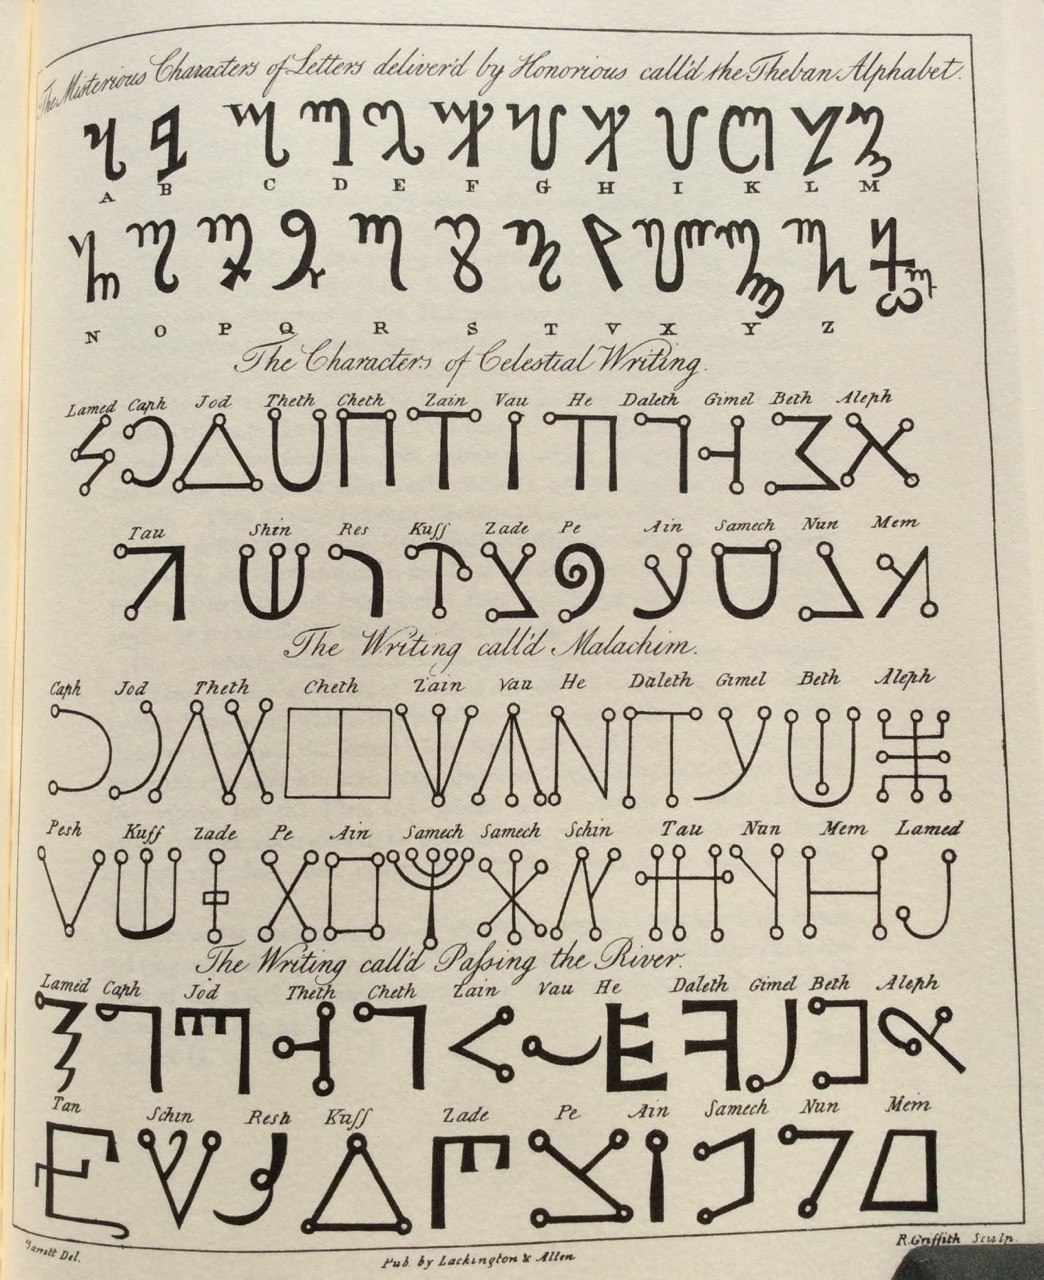 The Misterious Characters of Letters deliver'd by Honorious call'd the Theban Alphabet.
A B C D E F G H I K L M
N O P Q R S T V X Y Z
The Characters of Celestial Writing.
Lamed Caph Jod Theth Cheth Zain Vau He Daleth Gimel Beth Aleph
Tau Shin Res Kuff Zade Pe Ain Samech Nun Mem
The Writing call'd Malachim.
Caph Jod Theth Cheth Zain Vau He Daleth Gimel Beth Aleph
Pesh Kuff Zade Pe Ain Samech Samech Schin Tau Nun Mem Lamed
The Writing call'd Paſsing the River.
Lamed Caph Jod Theth Cheth Zain Vau He Daleth Gimel Beth Aleph
Tan Schin Resh Kuff Zade Pe Ain Samech Nun Mem
Barrett Del.
Pub. by Lackington & Allen
R. Griffith Sculp.